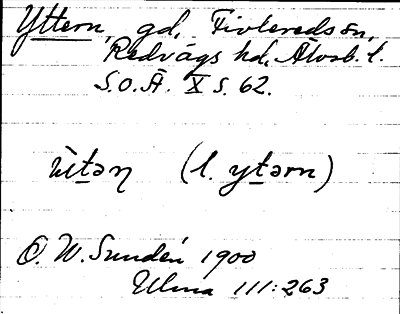 Yttern, gd, Tivleredssn,
Redvägs hd, Älvsb. l.
S.O.Ä. X s. 62.
ùtəɳ (l. ytərn)
O. W. Sundén 1900
Ulma 111:263